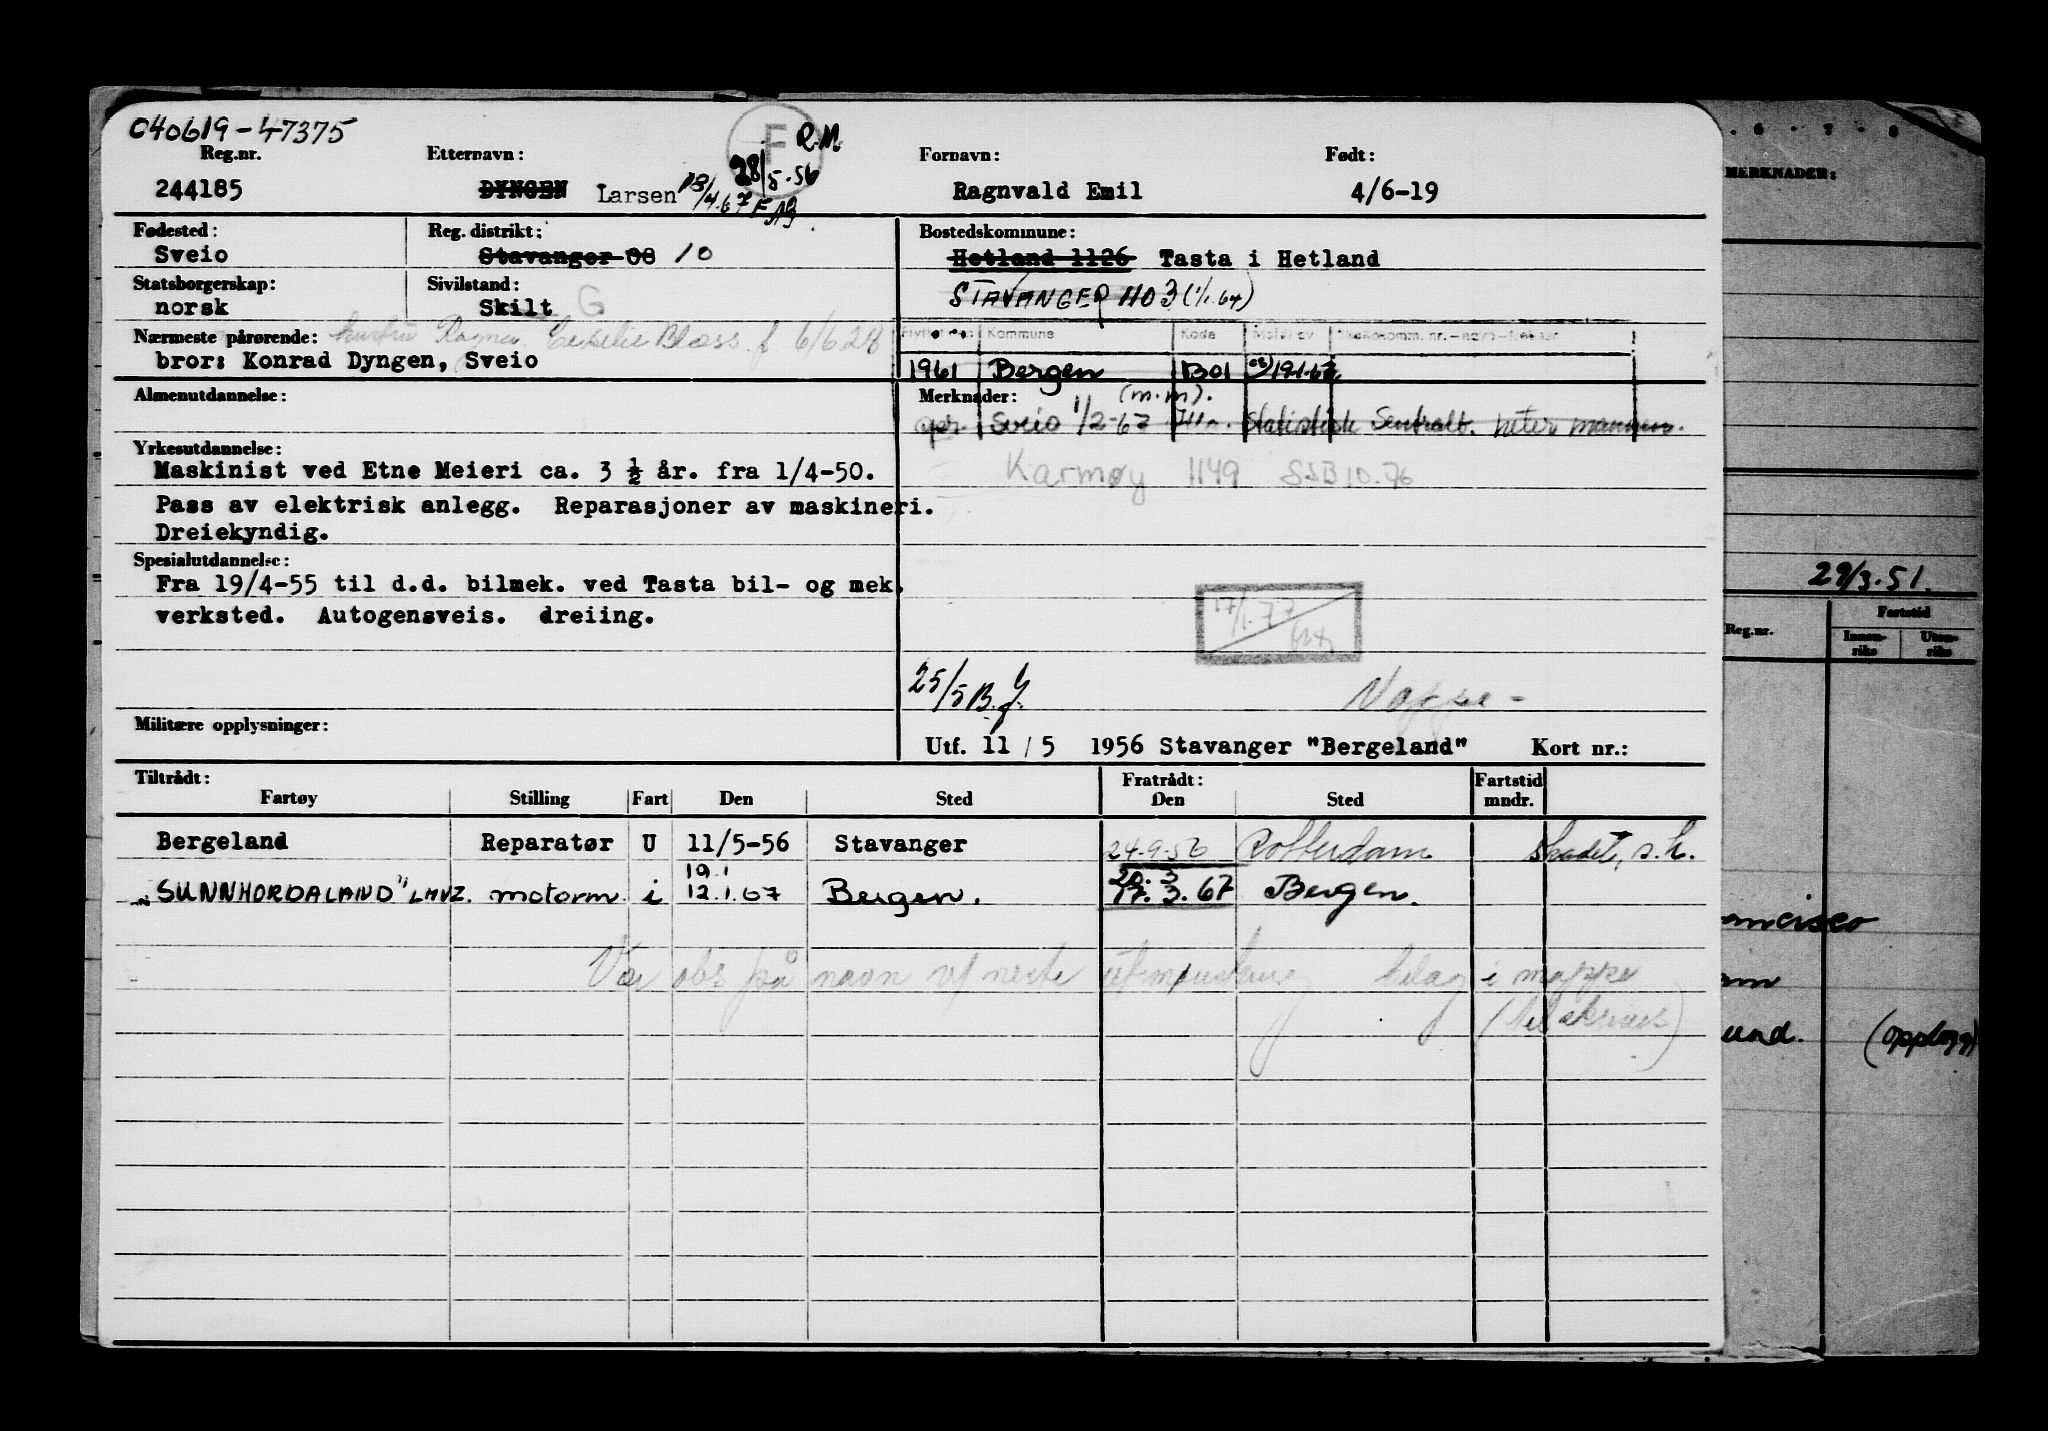 040619-47375
F R.M.
Reg.nr. Etternavn: 28/5-56 Fornavn: Født:
244185 DYNGEN Larsen Ragnvald Emil 4/6-19
Fødested: Reg. distrikt: Bostedskommune:
Sveio Stavanger 08 10 Hetland 1126 Tasta i Hetland
Statsborgerskap: Sivilstand:
norsk Skilt G STAVANGER 1103 (1/1.64)
Nærmeste pårørende: 6/6 28 Kommune Kode
bror: Konrad Dyngen, Sveio 1961 Bergen B01
Almenutdannelse: Merknader: (m.m).
Sveio 1/2-67 Statistisk Sentralb. heter
Yrkesutdannelse:
Maskinist ved Etne Meieri ca. 3 ½ år. fra 1/4-50. Karmøy 1149 SSB 10.76
Pass av elektrisk anlegg. Reparasjoner av maskineri.
Dreiekyndig.
Spesialutdannelse:
Fra 19/4-55 til d.d. bilmek. ved Tasta bil- og mek.
verksted. Autogensveis. dreiing.
17/1-77
25/5 B.J. Mappe -
Militære opplysninger:
Utf. 11 / 5 1956 Stavanger "Bergeland" Kort nr.:
Tiltrådt: Fratrådt: Fartstid
Fartøy Stilling Fart Den Sted Den Sted mndr.
Bergeland Reparatør U 11/5-56 Stavanger 24-9-56 Rotterdam Skadet, s.h.
19.1 20. 3
"SUNNHORDALAND" LHVZ. motorm. i 12.1.67 Bergen. 17. 3. 67 Bergen.
Vær obs på navn v/ neste utmønstring bilag i mappe
MERKNADER:
29/3.51.
Reg.nr. Fartstid
Innen-riks Uten-riks
ancisco
am
und. (opplagg)